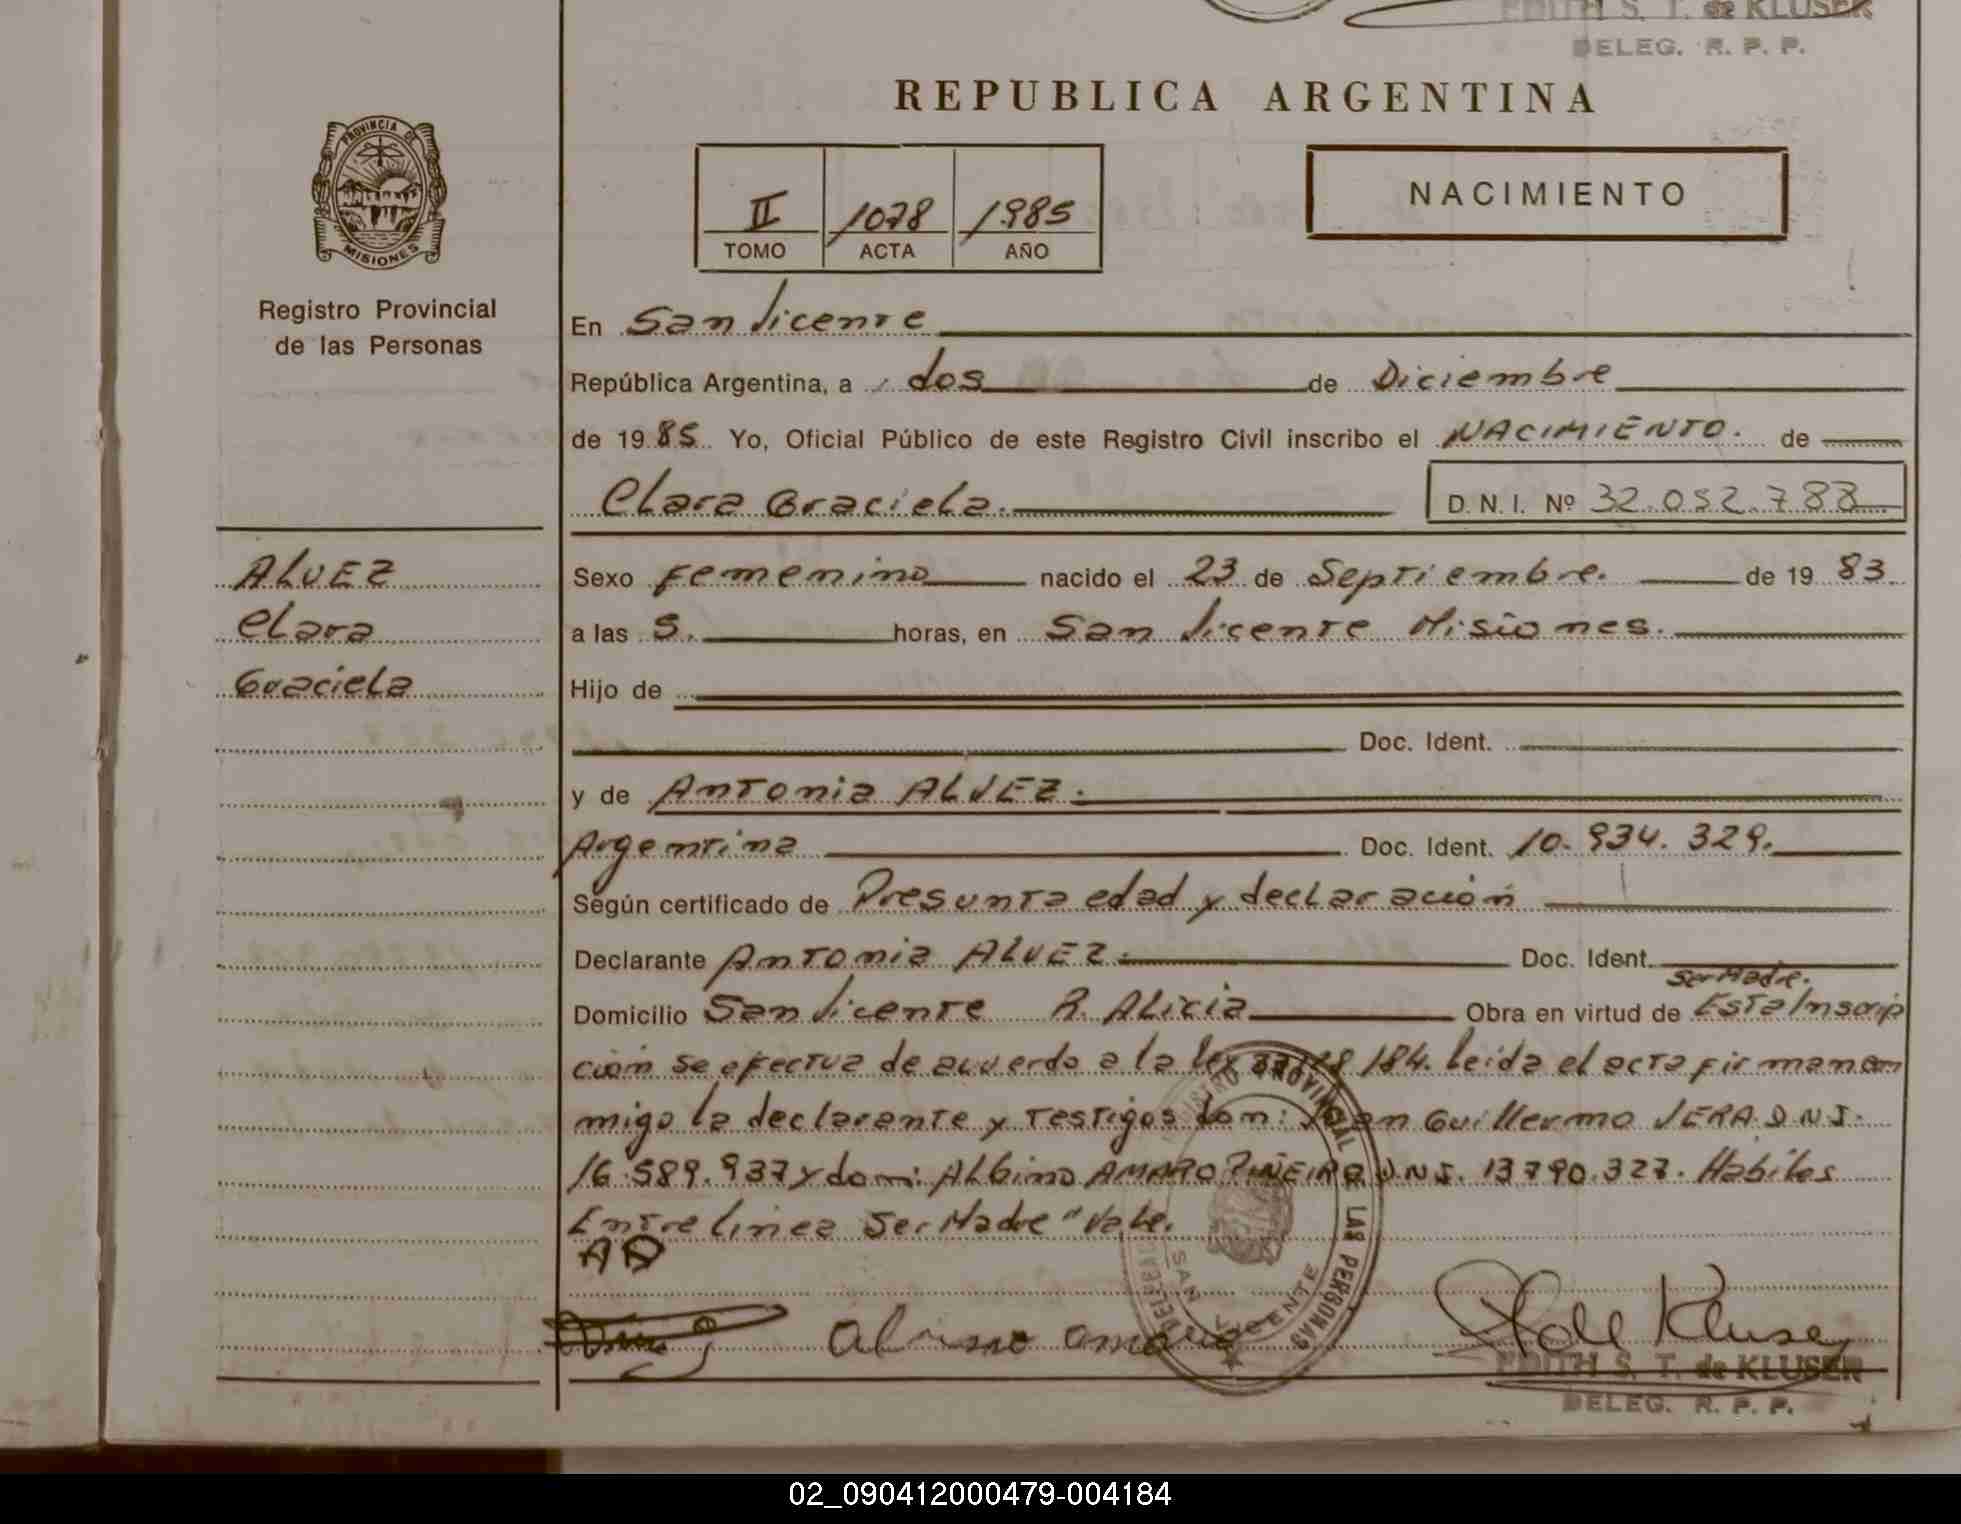 EDITH S. T. de KLUSER
DELEG. R. P. P.
REPUBLICA ARGENTINA
PROVINCIA DE
MISIONES
II 1078 1985
TOMO ACTA AÑO
NACIMIENTO
Registro Provincial
de las Personas
En San Vicente
República Argentina, a dos de Diciembre
de 1985 Yo, Oficial Público de este Registro Civil inscribo el NACIMIENTO. de
Clara Graciela. D. N. I. Nº 32.052.788
ALVEZ
Clara
Graciela
Sexo Femenino nacido el 23 de Septiembre. de 19 83.
a las 5. horas, en San Vicente Misiones.
Hijo de
Doc. Ident.
y de Antonia ALVEZ.
Argentina Doc. Ident. 10.934.329.
Según certificado de Presunta edad y declaración
Declarante Antonia ALVEZ. Doc. Ident.
ser Madre.
Domicilio San Vicente P. Alicia Obra en virtud de Esta Inscrip
ción se efectua de acuerdo a la ley 184. Leida el acta firman con
migo la declarante y testigos don: Juan Guillermo VERA D.N.I.
16.589.937 y don: Albino AMARO PIÑEIRO D.N.I. 13790.327. Habiles
Entre linea ser Madre" Vale.
AD
REGISTRO PROVINCIAL DE LAS PERSONAS
SAN VICENTE
EDITH S. T. de KLUSER
DELEG. R. P. P.
02_090412000479-004184